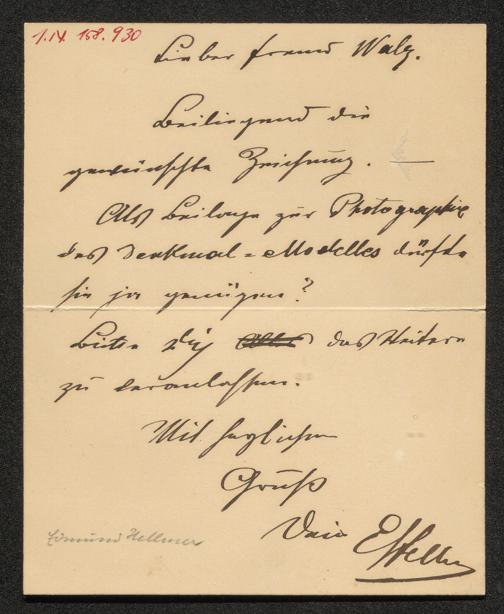 I.N. 158.930
Lieber Freund Walz.
Beiliegend die
gewünschte Zeichnung. —
Als Beilage zur Photographie
des Denkmal=Modelles dürfte
sie ja genügen?
Bitte Dich das Weitere
zu veranlassen.
Mit herzlichem
Gruß
Dein EHellmer
Edmund Hellmer